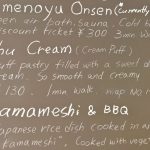 menoyu Onsen (Currently
en air bath, Sauna, Cold b
iscount ticket ¥300 3min W
hu Cream (Cream Puff)
uff pastry filled with a sweet d
ream. So smooth and creamy
130. /min walk. map No
amameshi & BBQ
apanese rice dish cooked in a
Kamameshi". Cooked with vege